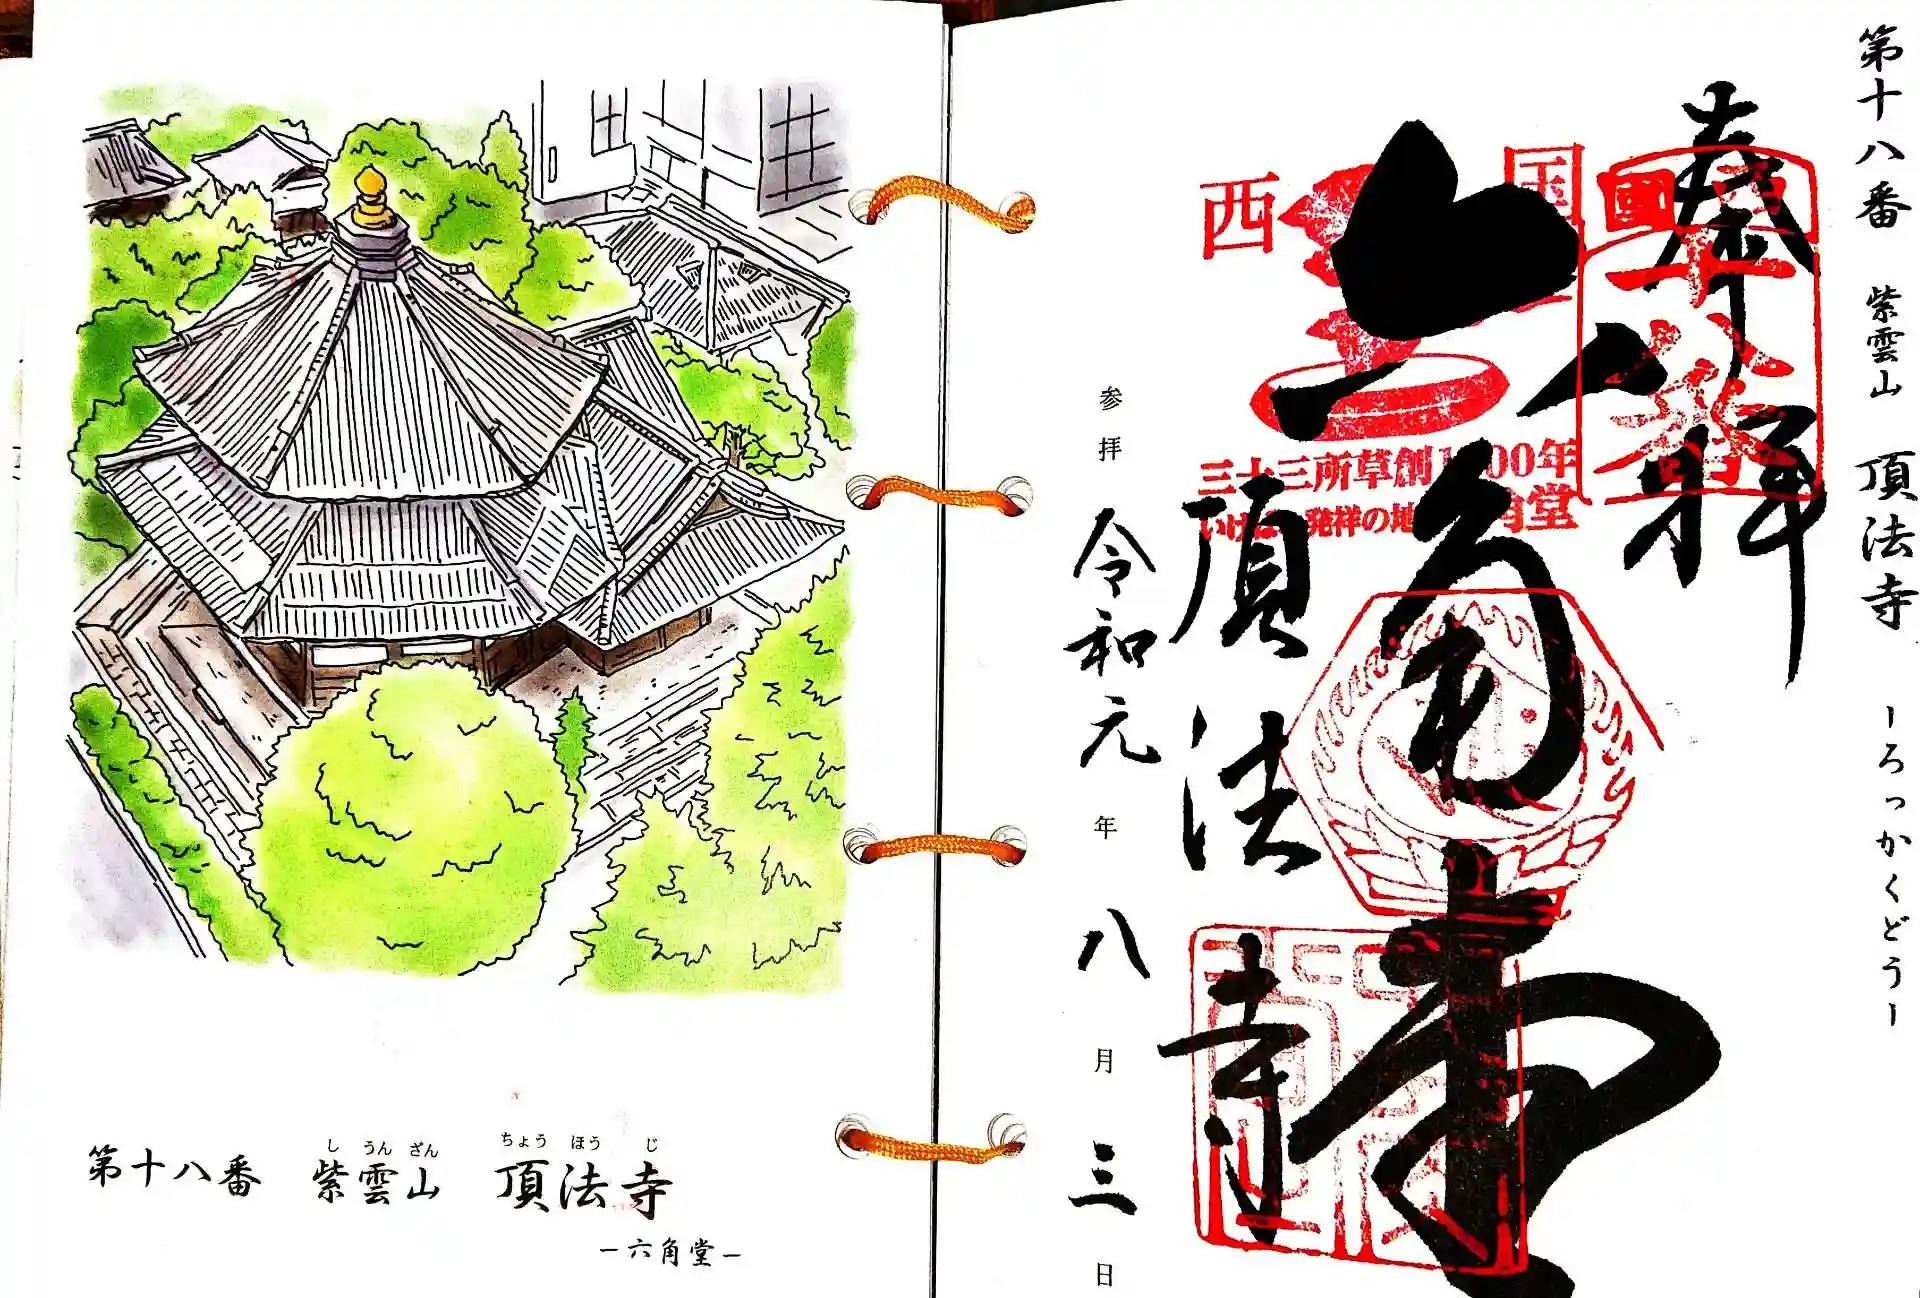 第十八番 紫雲山 頂法寺 ーろっかくどうー
奉拝
西国
西國十八番
三十三所草創1300年
いけばな発祥の地 六角堂
六角堂
頂法寺
参拝 令和元年八月三日
し うん ざん ちょう ほう じ
第十八番 紫雲山 頂法寺
ー六角堂ー